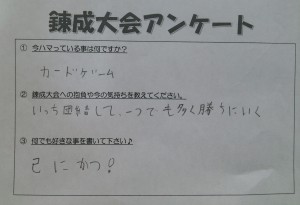 錬成大会アンケート
① 今ハマっている事は何ですか?
カードゲーム
② 錬成大会への抱負や今の気持ちを教えてください。
いっち団結して、一つでも多く勝ちにいく
③ 何でも好きな事を書いて下さい♪
己にかつ!